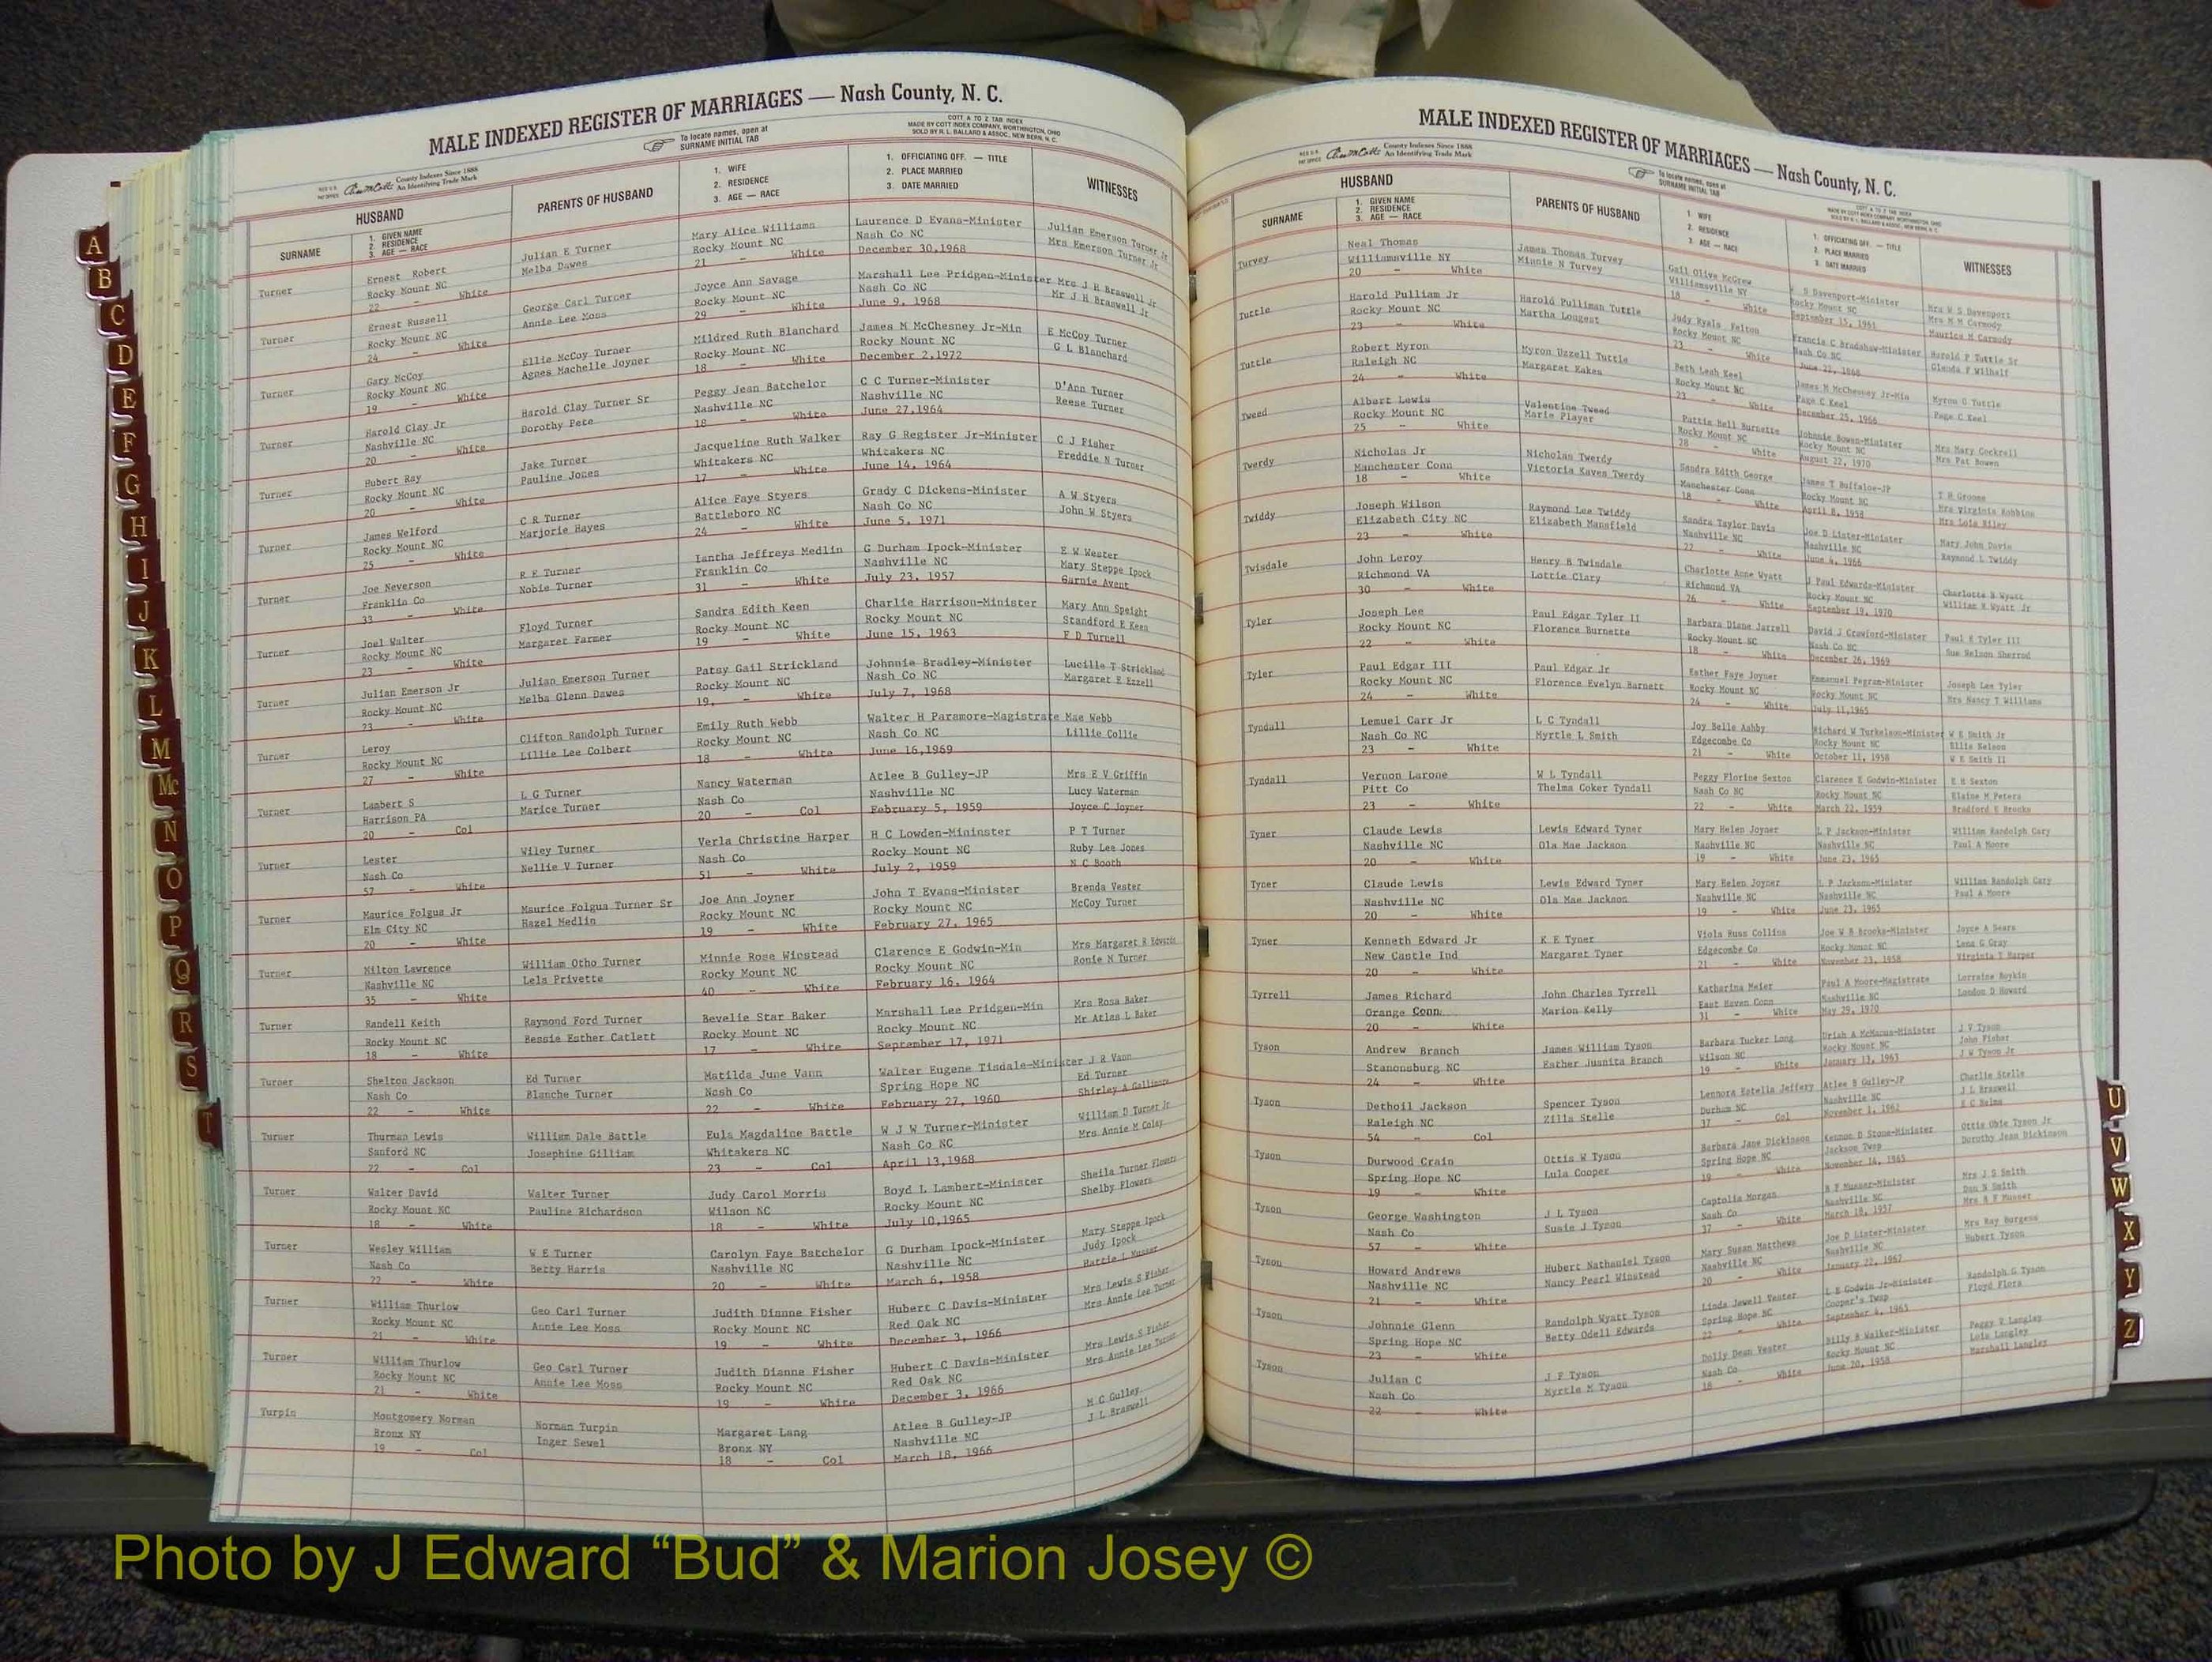 MALE INDEXED REGISTER OF MARRIAGES — Nash County, N. C.
County Indexes Since 1888
An Identifying Trade Mark
To locate names, open at
SURNAME INITIAL TAB
COTT A TO Z TAB INDEX
MADE BY COTT INDEX COMPANY, WORTHINGTON, OHIO
SOLD BY R. L. BALLARD & ASSOC., NEW BERN, N. C.
HUSBAND
SURNAME
1. GIVEN NAME
2. RESIDENCE
3. AGE — RACE
PARENTS OF HUSBAND
1. WIFE
2. RESIDENCE
3. AGE — RACE
1. OFFICIATING OFF. — TITLE
2. PLACE MARRIED
3. DATE MARRIED
WITNESSES
Turner Ernest Robert Julian E Turner Mary Alice Williams Laurence D Evans-Minister Julian Emerson Turner Jr
Rocky Mount NC Melba Dawes Rocky Mount NC Nash Co NC Mrs Emerson Turner Jr
22 - White 21 - White December 30,1968
Turner Ernest Russell George Carl Turner Joyce Ann Savage Marshall Lee Pridgen-Minister Mrs J H Braswell Jr
Rocky Mount NC Annie Lee Moss Rocky Mount NC Nash Co NC Mr J H Braswell Jr
24 - White 29 - White June 9, 1968
Turner Gary McCoy Ellie McCoy Turner Mildred Ruth Blanchard James M McChesney Jr-Min E McCoy Turner
Rocky Mount NC Agnes Machelle Joyner Rocky Mount NC Rocky Mount NC G L Blanchard
19 - White 18 - White December 2,1972
Turner Harold Clay Jr Harold Clay Turner Sr Peggy Jean Batchelor C C Turner-Minister D'Ann Turner
Nashville NC Dorothy Pete Nashville NC Nashville NC Reese Turner
20 - White 18 - White June 27,1964
Turner Hubert Ray Jake Turner Jacqueline Ruth Walker Ray G Register Jr-Minister C J Fisher
Rocky Mount NC Pauline Jones Whitakers NC Whitakers NC Freddie N Turner
20 - White 17 - White June 14, 1964
Turner James Welford C R Turner Alice Faye Styers Grady C Dickens-Minister A W Styers
Rocky Mount NC Marjorie Hayes Battleboro NC Nash Co NC John W Styers
25 - White 24 - White June 5, 1971
Turner Joe Neverson R E Turner Iantha Jeffreys Medlin G Durham Ipock-Minister E W Wester
Franklin Co Nobie Turner Franklin Co Nashville NC Mary Steppe Ipock
33 - White 31 - White July 23, 1957 Garnie Avent
Turner Joel Walter Floyd Turner Sandra Edith Keen Charlie Harrison-Minister Mary Ann Speight
Rocky Mount NC Margaret Farmer Rocky Mount NC Rocky Mount NC Standford E Keen
23 - White 19 - White June 15, 1963 F D Turnell
Turner Julian Emerson Jr Julian Emerson Turner Patsy Gail Strickland Johnnie Bradley-Minister Lucille T Strickland
Rocky Mount NC Melba Glenn Dawes Rocky Mount NC Nash Co NC Margaret E Ezzell
23 - White 19, - White July 7, 1968
Turner Leroy Clifton Randolph Turner Emily Ruth Webb Walter H Paramore-Magistrate Mae Webb
Rocky Mount NC Lillie Lee Colbert Rocky Mount NC Nash Co NC Lillie Collie
27 - White 18 - White June 16,1969
Turner Lambert S L G Turner Nancy Waterman Atlee B Gulley-JP Mrs E V Griffin
Harrison PA Marice Turner Nash Co Nashville NC Lucy Waterman
20 - Col 20 - Col February 5, 1959 Joyce C Joyner
Turner Lester Wiley Turner Verla Christine Harper H C Lowden-Mininster P T Turner
Nash Co Nellie V Turner Nash Co Rocky Mount NC Ruby Lee Jones
57 - White 51 - White July 2, 1959 N C Booth
Turner Maurice Folgus Jr Maurice Folgus Turner Sr Joe Ann Joyner John T Evans-Minister Brenda Vester
Elm City NC Hazel Medlin Rocky Mount NC Rocky Mount NC McCoy Turner
20 - White 19 - White February 27, 1965
Turner Milton Lawrence William Otho Turner Minnie Rose Winstead Clarence E Godwin-Min Mrs Margaret R Edwards
Nashville NC Lela Privette Rocky Mount NC Rocky Mount NC Ronie M Turner
35 - White 40 - White February 16, 1964
Turner Randell Keith Raymond Ford Turner Bevelie Star Baker Marshall Lee Pridgen-Min Mrs Rosa Baker
Rocky Mount NC Bessie Esther Catlett Rocky Mount NC Rocky Mount NC Mr Atlas L Baker
18 - White 17 - White September 17, 1971
Turner Shelton Jackson Ed Turner Matilda June Vann Walter Eugene Tisdale-Minister J R Vann
Nash Co Blanche Turner Nash Co Spring Hope NC Ed Turner
22 - White 22 - White February 27, 1960 Shirley A
Turner Thurman Lewis William Dale Battle Eula Magdaline Battle W J W Turner-Minister William D Turner Jr
Sanford NC Josephine Gilliam Whitakers NC Nash Co NC Mrs Annie M Coley
22 - Col 23 - Col April 13,1968
Turner Walter David Walter Turner Judy Carol Morris Boyd L Lambert-Minister Sheila Turner Flowers
Rocky Mount NC Pauline Richardson Wilson NC Rocky Mount NC Shelby Flowers
18 - White 18 - White July 10,1965
Turner Wesley William W E Turner Carolyn Faye Batchelor G Durham Ipock-Minister Mary Steppe Ipock
Nash Co Betty Harris Nashville NC Nashville NC Judy Ipock
22 - White 20 - White March 6, 1958 Hattie L
Turner William Thurlow Geo Carl Turner Judith Dianne Fisher Hubert C Davis-Minister Mrs Lewis S Fisher
Rocky Mount NC Annie Lee Moss Rocky Mount NC Red Oak NC Mrs Annie Lee Turner
21 - White 19 - White December 3, 1966
Turner William Thurlow Geo Carl Turner Judith Dianne Fisher Hubert C Davis-Minister Mrs Lewis S Fisher
Rocky Mount NC Annie Lee Moss Rocky Mount NC Red Oak NC Mrs Annie Lee Turner
21 - White 19 - White December 3, 1966
Turpin Montgomery Norman Norman Turpin Margaret Lang Atlee B Gulley-JP M C Gulley
Bronx NY Inger Sewel Bronx NY Nashville NC J L Braswell
19 - Col 18 - Col March 18, 1966
MALE INDEXED REGISTER OF MARRIAGES — Nash County, N. C.
County Indexes Since 1888
An Identifying Trade Mark
To locate names, open at
SURNAME INITIAL TAB
HUSBAND
SURNAME
1. GIVEN NAME
2. RESIDENCE
3. AGE — RACE
PARENTS OF HUSBAND
1. WIFE
2. RESIDENCE
3. AGE — RACE
1. OFFICIATING OFF. — TITLE
2. PLACE MARRIED
3. DATE MARRIED
WITNESSES
Turvey Neal Thomas James Thomas Turvey Gail Olive McGrew S Davenport-Minister Mrs W S Davenport
Williamsville NY Minnie N Turvey Williamsville NY Rocky Mount NC Mrs M M Carmody
20 - White 18 - White September 15, 1961 Maurice M Carmody
Tuttle Harold Pulliam Jr Harold Pulliman Tuttle Judy Ryals Felton Francis C Bradshaw-Minister Harold P Tuttle Sr
Rocky Mount NC Martha Lougest Rocky Mount NC Nash Co NC Glenda F Wilhelf
23 - White 23 - White June 22, 1968
Tuttle Robert Myron Myron Uzzell Tuttle Beth Leah Keel James M McChesney Jr-Min Myron U Tuttle
Raleigh NC Margaret Eakes Rocky Mount NC Page C Keel Page C Keel
24 - White 23 - White December 25, 1966
Tweed Albert Lewis Valentine Tweed Pattie Bell Burnette Johnnie Bowen-Minister Mrs Mary Cockrell
Rocky Mount NC Marie Player Rocky Mount NC Rocky Mount NC Mrs Pat Bowen
25 - White 28 - White August 22, 1970
Twerdy Nicholas Jr Nicholas Twerdy Sandra Edith George James T Buffaloe-JP T H Groome
Manchester Conn Victoria Kaves Twerdy Manchester Conn Rocky Mount NC Mrs Virginia Robbins
18 - White 18 - White April 8, 1958 Mrs Lois Riley
Twiddy Joseph Wilson Raymond Lee Twiddy Sandra Taylor Davis Joe D Lister-Minister Mary John Davis
Elizabeth City NC Elizabeth Mansfield Nashville NC Nashville NC Raymond L Twiddy
23 - White 22 - White June 4, 1966
Twisdale John Leroy Henry B Twisdale Charlotte Anne Wyatt J Paul Edwards-Minister Charlotte B Wyatt
Richmond VA Lottie Clary Richmond VA Rocky Mount NC William R Wyatt Jr
30 - White 26 - White September 19, 1970
Tyler Joseph Lee Paul Edgar Tyler II Barbara Diane Jarrell David J Crawford-Minister Paul E Tyler III
Rocky Mount NC Florence Burnette Rocky Mount NC Nash Co NC Sue Nelson Sherrod
22 - White 18 - White December 26, 1969
Tyler Paul Edgar III Paul Edgar Jr Esther Faye Joyner Emmanuel Pegram-Minister Joseph Lee Tyler
Rocky Mount NC Florence Evelyn Barnett Rocky Mount NC Rocky Mount NC Mrs Nancy T Williams
24 - White 24 - White July 11,1965
Tyndall Lemuel Carr Jr L C Tyndall Joy Belle Ashby Richard W Turkelson-Minister W E Smith Jr
Nash Co NC Myrtle L Smith Edgecombe Co Rocky Mount NC Ellis Nelson
23 - White 21 - White October 11, 1958 W E Smith II
Tyndall Vernon Larone W L Tyndall Peggy Florine Sexton Clarence E Godwin-Minister E H Sexton
Pitt Co Thelma Coker Tyndall Nash Co NC Rocky Mount NC Elaine M Peters
23 - White 22 - White March 22, 1959 Bradford E Brooks
Tyner Claude Lewis Lewis Edward Tyner Mary Helen Joyner L P Jackson-Minister William Randolph Cary
Nashville NC Ola Mae Jackson Nashville NC Nashville NC Paul A Moore
20 - White 19 - White June 23, 1965
Tyner Claude Lewis Lewis Edward Tyner Mary Helen Joyner L P Jackson-Minister William Randolph Cary
Nashville NC Ola Mae Jackson Nashville NC Nashville NC Paul A Moore
20 - White 19 - White June 23, 1965
Tyner Kenneth Edward Jr K E Tyner Viola Russ Collins Joe W B Brooks-Minister Joyce A Sears
New Castle Ind Margaret Tyner Edgecombe Co Rocky Mount NC Lena G Gray
20 - White 21 - White November 23, 1958 Virginia T Harper
Tyrrell James Richard John Charles Tyrrell Katharina Meier Paul A Moore-Magistrate Lorraine Boykin
Orange Conn. Marion Kelly East Haven Conn Nashville NC London D Howard
20 - White 31 - White May 29, 1970
Tyson Andrew Branch James William Tyson Barbara Tucker Long Uriah A McManus-Minister J V Tyson
Stanonsburg NC Esther Juanita Branch Wilson NC Rocky Mount NC John Fisher
24 - White 19 - White January 13, 1963 J W Tyson Jr
Tyson Dethoil Jackson Spencer Tyson Lennora Estella Jeffery Atlee B Gulley-JP Charlie Stelle
Raleigh NC Zilla Stelle Durham NC Nashville NC J L Braswell
54 - Col 37 - Col November 1, 1962 E C Helms
Tyson Durwood Crain Ottis W Tyson Barbara Jane Dickinson Kennon D Stone-Minister Ottis Obie Tyson Jr
Spring Hope NC Lula Cooper Spring Hope NC Jackson Twsp Dorothy Jean Dickinson
19 - White 19 - White November 14, 1965
Tyson George Washington J L Tyson Captolia Morgan R F Musser-Minister Mrs J S Smith
Nash Co Susie J Tyson Nash Co Nashville NC Dan B Smith
57 - White 37 - White March 18, 1957 Mrs R F Musser
Tyson Howard Andrews Hubert Nathaniel Tyson Mary Susan Matthews Joe D Lister-Minister Mrs Ray Burgess
Nashville NC Nancy Pearl Winstead Nashville NC Nashville NC Hubert Tyson
21 - White 20 - White January 22, 1967
Tyson Johnnie Glenn Randolph Wyatt Tyson Linda Jewell Vester L B Godwin Jr-Minister Randolph G Tyson
Spring Hope NC Betty Odell Edwards Spring Hope NC Cooper's Twsp Floyd Flora
23 - White 22 - White September 4, 1965
Tyson Julian C J F Tyson Dolly Dean Vester Billy B Walker-Minister Peggy V Langley
Nash Co Myrtle M Tyson Nash Co Rocky Mount NC Lois Langley
22 - White 18 - White June 20, 1958 Marshall Langley
A
B
C
D
E
F
G
H
I
J
K
L
M
Mc
N
O
P
Q
R
S
T
U
V
W
X
Y
Z
Photo by J Edward “Bud” & Marion Josey ©